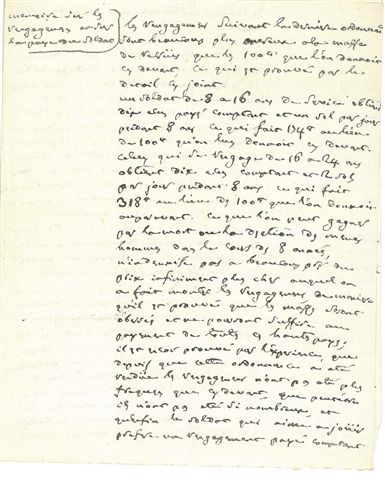 memoire sur les
rengagemens et sur
la paye du soldat
les rengagemens suivant la derniere ordonnance
sont beaucoup plus onereux a la masse
de que les 100lt que l'on donnoit
cy devant. ce qui est prouvé par le
detail cy joint.
un soldat de 8 a 16 ans de service obtient
dix ecus payé comptant et un sol par jour
pendant 8 ans ce qui fait 174lt au lieu
de 100lt qu'on leur donnoit cy devant.
celuy qui se rengage de 16 a 24 ans
obtient dix ecus comptant et 2 sols
par jour pendant 8 ans ce qui fait
318lt au lieu de 100lt que l'on donnoit
auparavant. ce que l'on peut gagner
par la mort ou la desertion de memes
hommes dans le cours de 8 années,
n'indemnise pas a beaucoup près du
prix infiniment plus cher auquel on
a fait monter les rengagemens de maniere
qu'il est prouvé que les masses seront
obérées et ne pourront suffire au
payement de toutes ces hautes payes;
il est encor prouvé par l'experience, que
depuis que cette ordonnance a eté
rendue les rengagemens n'ont pas eté plus
frequens que cy devant, que peutetre
ils n'ont pas eté si nombreux, et
qu'enfin le soldat qui aime a jouir
prefere un rengagement payé comptant